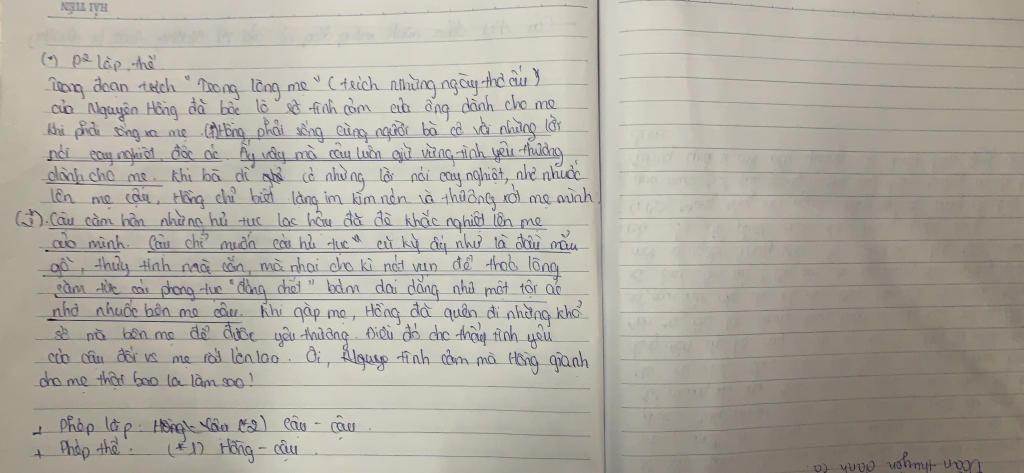 HẢI TIẾN
(*) P² lặp, thế
Trong đoạn trích "Trong lòng mẹ" (trích những ngày thơ ấu)
của Nguyên Hồng đã bộc lộ sơ tình cảm của ông dành cho mẹ
khi phải sống xa mẹ. (*1) Hồng phải sống cùng người bà cô với những lời
nói cay nghiệt, độc ác. Ấy vậy mà cậu luôn giữ vững tình yêu thương
dành cho mẹ. Khi bà dì có những lời nói cay nghiệt, nhơ nhuốc
lên mẹ cậu, Hồng chỉ biết lặng im kìm nén và thương xót mẹ mình
Cậu căm hờn những hủ tục lạc hậu đã đè khắc nghiệt lên mẹ
của mình. Cậu chỉ muốn cái hủ tục cũ kỹ đấy như là đầu mẩu
gỗ, thủy tinh mà cắn, mà nhai cho kì nát vụn để thoả lòng
căm tức cái phong tục "đáng chết" bám dai dẳng như một tội ác
nhơ nhuốc bên mẹ cậu. Khi gặp mẹ, Hồng đã quên đi những khổ
sở mà bên mẹ để được yêu thương. Điều đó cho thấy tình yêu
của cậu đối vs mẹ rất lớn lao. Ôi, tình cảm mà Hồng giành
cho mẹ thật bao la làm sao!
+ Phép lặp: (*2) Cậu - cậu.
+ Phép thế: (*1) Hồng - cậu